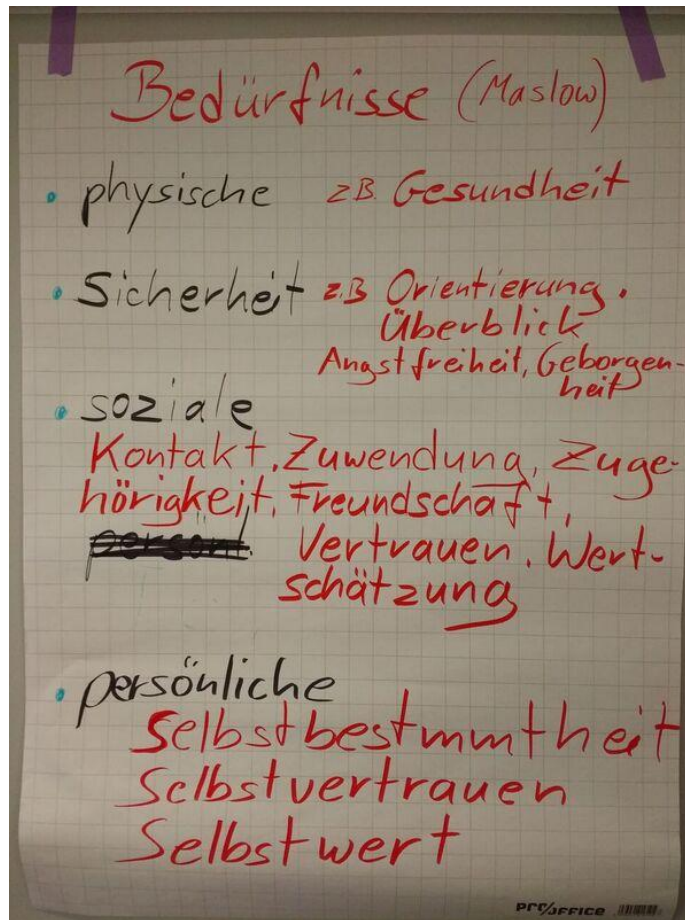 Bedürfnisse (Maslow)
• physische z.B. Gesundheit
• Sicherheit z.B Orientierung,
Überblick
Angstfreiheit, Geborgen-
heit
• soziale
Kontakt, Zuwendung, Zuge-
hörigkeit, Freundschaft,
Vertrauen, Wert-
schätzung
• persönliche
Selbstbestmmtheit
Selbstvertrauen
Selbstwert
PRO/OFFICE